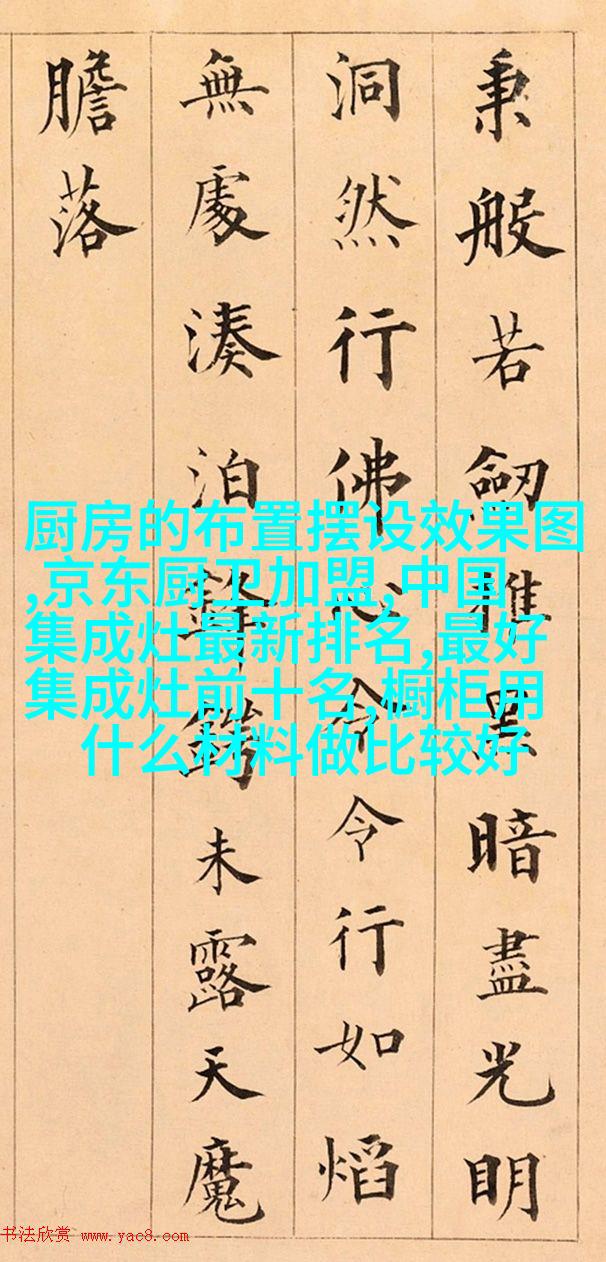 秉般若劒黑暗盡光明
洞然行佛心令令行如熖
無處湊泊鋒鋩未露天魔
膽落
厨房的布置摆设效果图
,京东厨卫加盟,中国
集成灶最新排名,最好
集成灶前十名,橱柜用
什么材料做比较好
书法欣赏 www.yac8.com